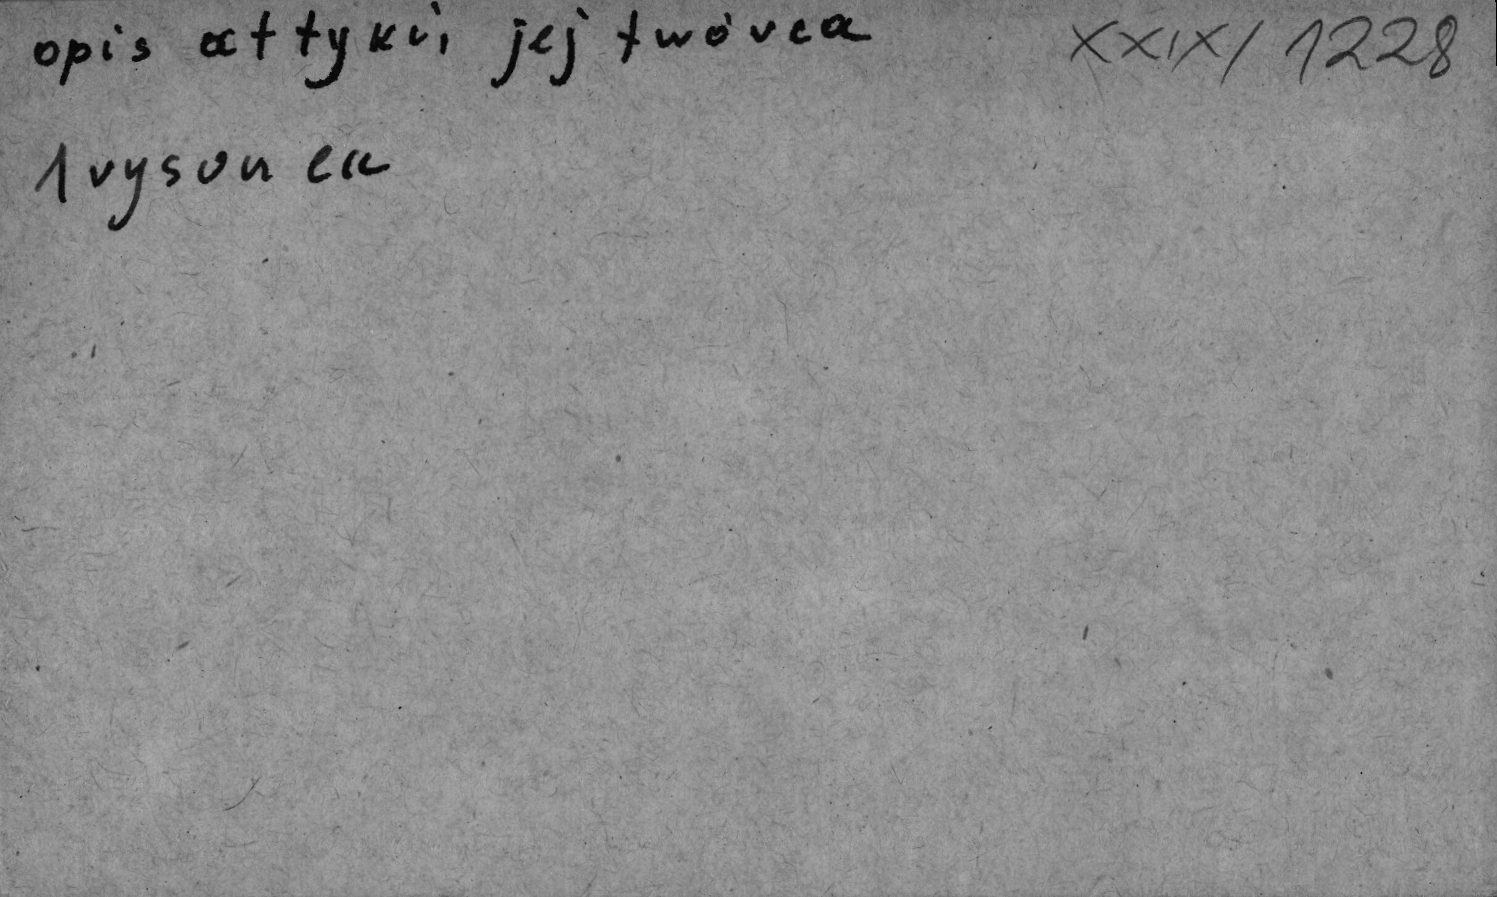 opis attyki, jej twórca XXIX/1228
1 rysunek